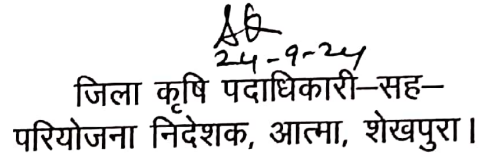 24-9-24
जिला कृषि पदाधिकारी–सह–
परियोजना निदेशक, आत्मा, शेखपुरा।